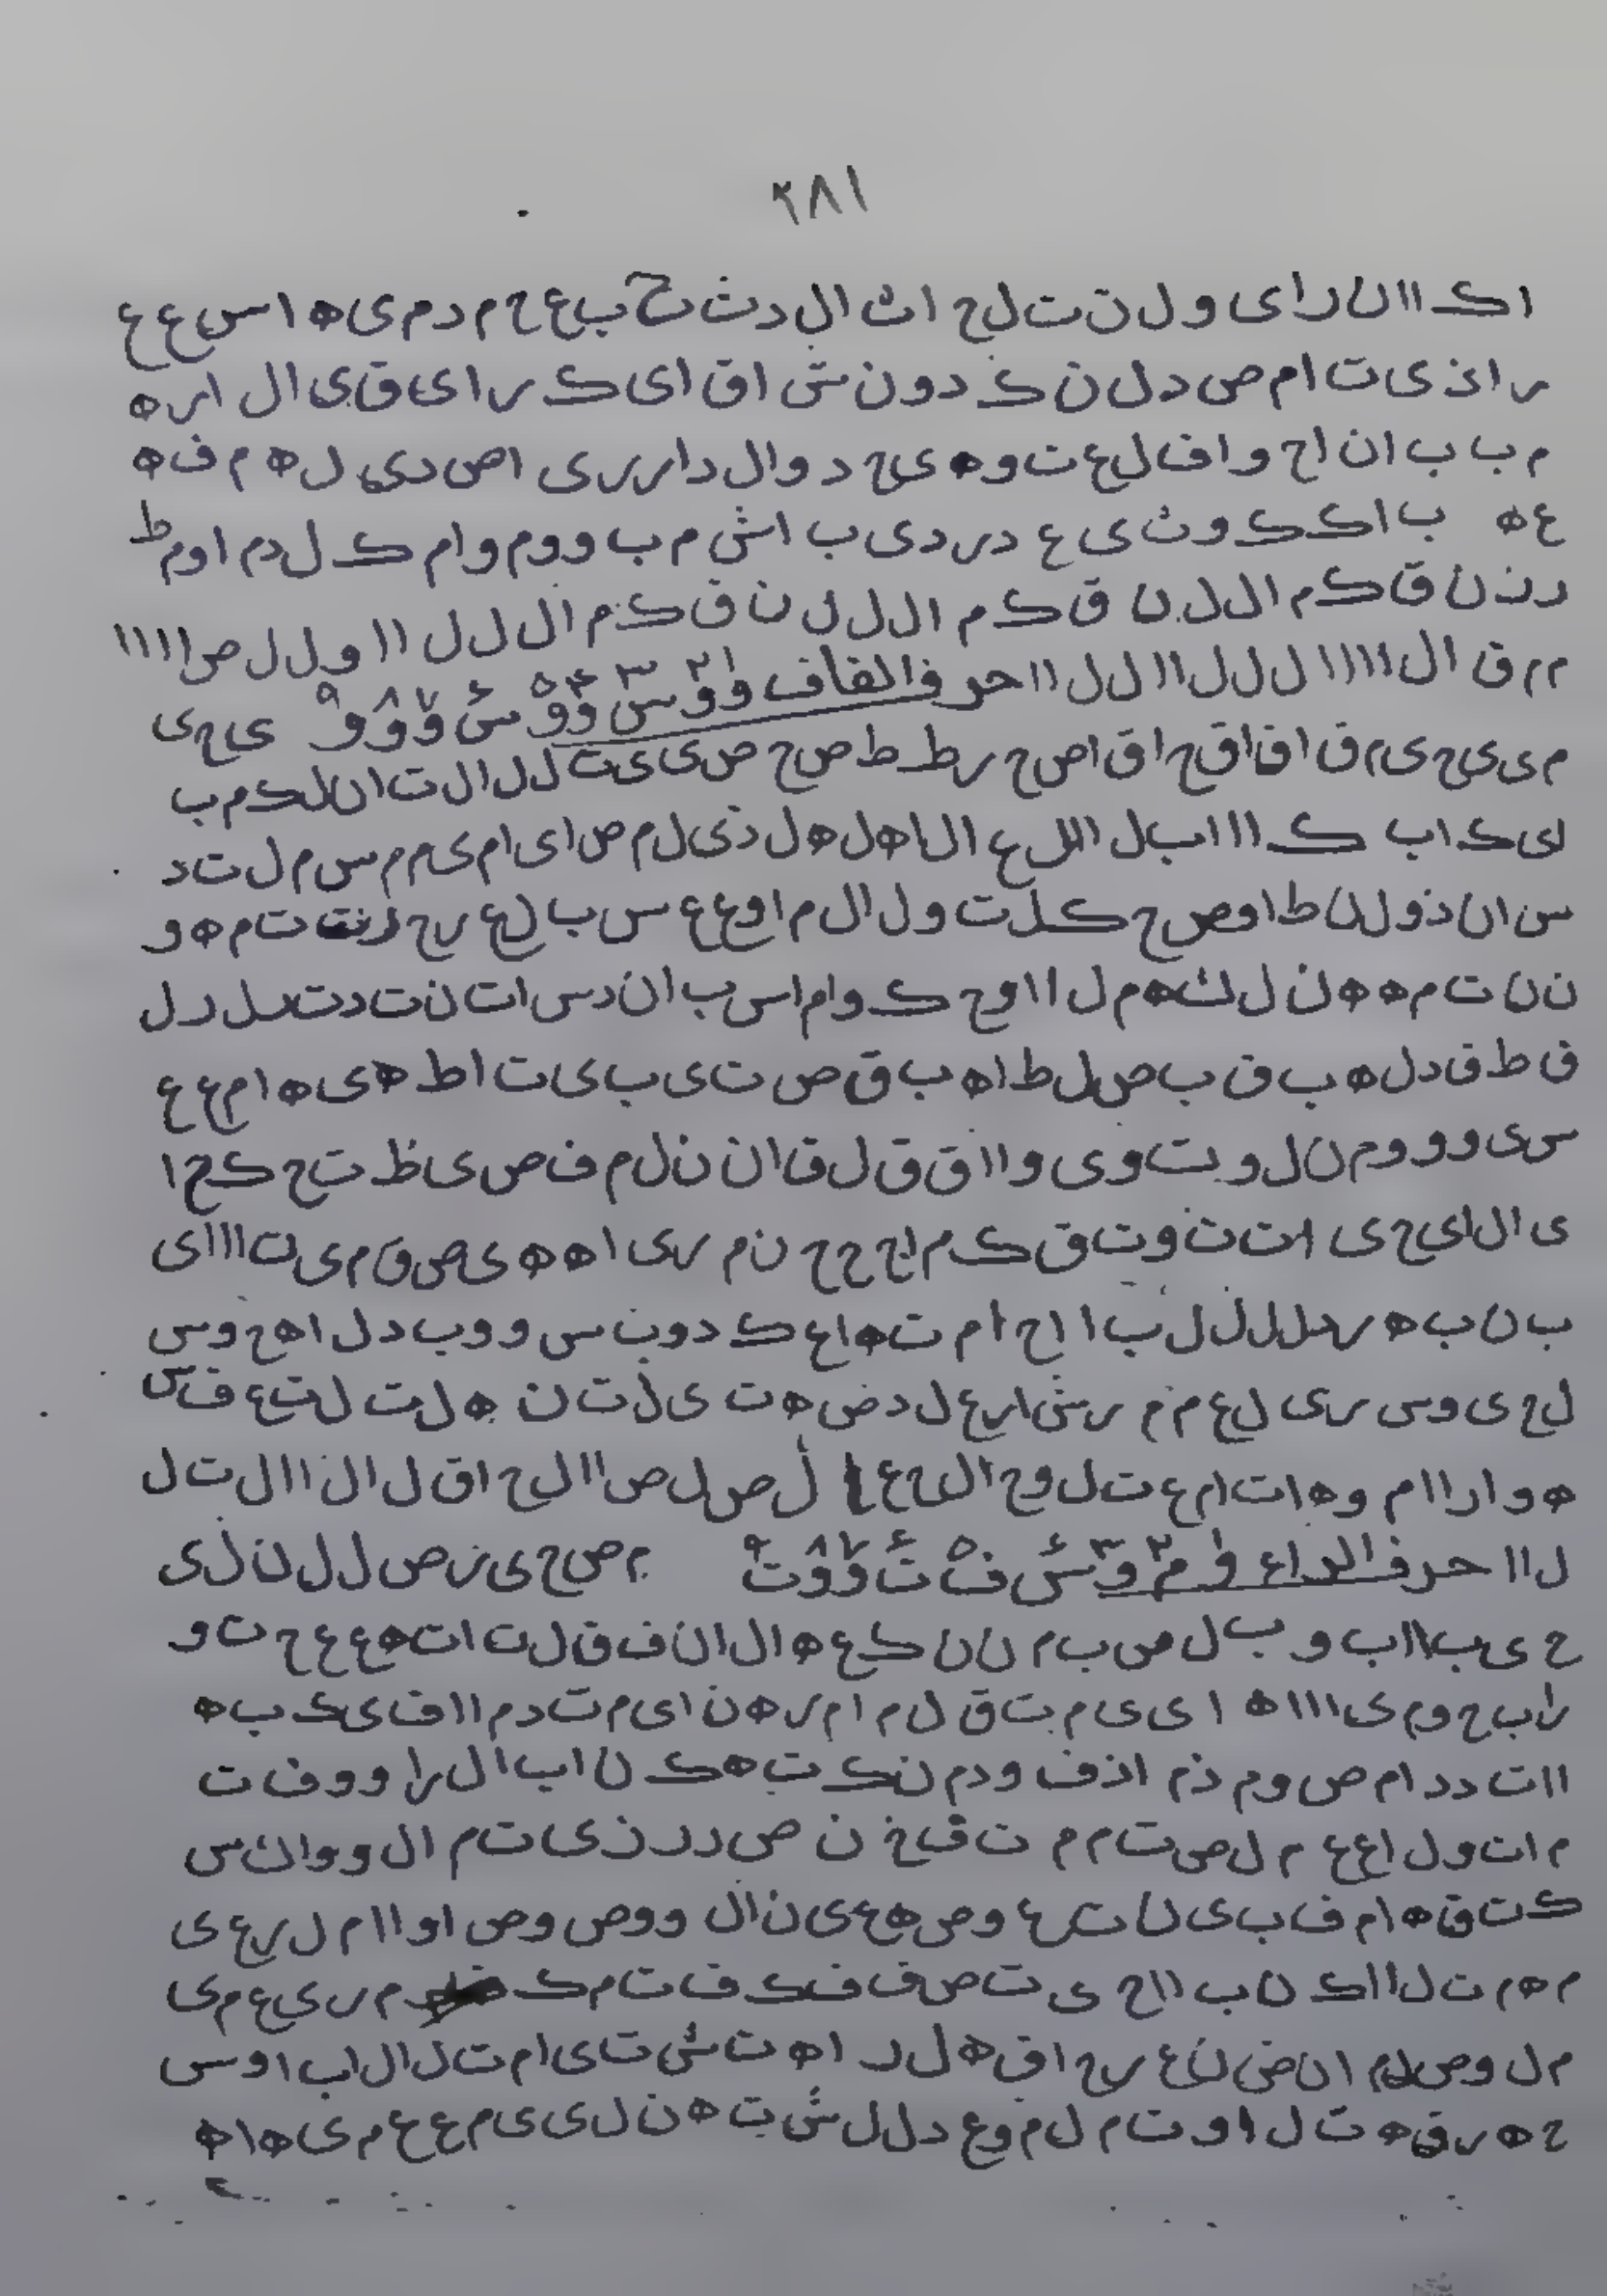 ٢٨١
ا ک ا ا ن ر ا ی و ل ن ت ل ح ا ث ا ل د ث ت ح ب ع ح م د م ی ه ا س ع ع
ر ا ذ ی ت ا م ص د ل ن ک د و ن ش ا ق ا ی ک ر ا ی ق ی ا ل ا ر ه
م ب ب ا ن ا ح و ا ف ل ع ت و ه ی ح د و ا ل د ا ر ر ی ا ص د ی ل ه م ف ه
ع ه ب ا ک ک و ث ی ع د ر د ی ب ا ش م ب و و م و ا م ک ل د م ا و م ط
ر ن ن ق ک م ا ل ل ن ق ک م ا ل ل ل ن ق ک م ا ل ل ل ا ا و ل ل ص ا ا ا ا
م م ق ا ل ا ا ا ا ل ل ل ا ا ل ل ا ا حرف القاف
م ی ی ح ی م ق ا ق ا ق ح ا ق ا ص ح ر ط ط ص ح ص ی ی ت ل ل ا ل ت ا ن ل ک م ب
ا ی ک ا ب ک ا ا ا ب ل ا ل ل ع ا ل ا ه ل ه ل ذ ی ل م ص ا ی ا م ی م م س م ل ت د
س ا ن ذ و ل ن ط ا و ص ح ک ل ت و ل ا ل م ا و ع ع س ب ل ع ر ح ت م ه و
ن ن ت م ه ه ن ل ک ه م ل ا ا و ح ک و ا م ا س ب ا ن د س ا ت ن ت د ت ل ر ل
ق ط ق د ل ه ب ق ب ص ل ط ا ه ب ق ص ت ی ب ی ت ا ط ه ی ه ا م ع ع
س ی و و و م ن ل و ب ت و ی و ا ا ق ق ل ق ا ن ن ل م ف ص ی ظ ت ح ک ح ا
ی ا ل ا ی ح ی ا ت ت و ت ق ک م ا ح ح ح ن م ر ی ا ه ه ی ص ق م ی ن ا ا ا ی
ب ن ب ه ر د ل ل ل ل ب ا ا ح ا م ت ه ا ع ک د و ب س و و ب د ل ا ه ح و س
ل ح ی و س ر ی ل ع م م ر ش ا ر ع ل د ض ه ت ی ل ت ن ه ل ت ل ت ع ف س
ه و ا ر ا ا م و ه ا ت ا م ع ت ل و ح ا ل ح ع ل ص ل ص ا ا ل ح ا ق ل ا ل ا ا ل ت ل
ل ا ا حرف م ص ح ی ن ص ل ل ن ل ی
ح ی ب ا ا ب و ب ل ص ب م ن ن ک ع ه ا ل ا ن ف ق ل ت ا ت ه ع ع ح ت و
ر ا ب ح و م ی ا ا ا ه ا ی ی م ت ق ل م ا م ر ه ن ا ی م ت د م ا ا ف ی ک ب ه
ا ا ت د د ا م ص و م ذ م ا ذ ف و د م ن ک ت ه ک ن ا ب ا ل ر ا و و ف ت
م ا ت و ل ا ع ع م ل ص ت م م ت ق خ ن ص د ر ز ی ت م ا ل و و ا ن س
ک ت ق ه ا م ف ب ی ن ت ع و ص ه ع ی ن ا ل و و ص و ص ا و ا ا م ل ر ع ی
م ه م ت ل ا ا ک ن ب ا ا ح ی ت ص ف ف ک ف ت م ک م ر ی ع م ی
م ل و ص ل م ا ن ض ن ع ر ح ا ق ه ل ر ا ه ت ش ت ی ا م ت ل ا ل ا ب ا و س
ح ه ر ق ه ت ل ا و ت م ل م و ع د ل ل ش ت ه ن ل ی ی م ع ع م ی ه ا ه